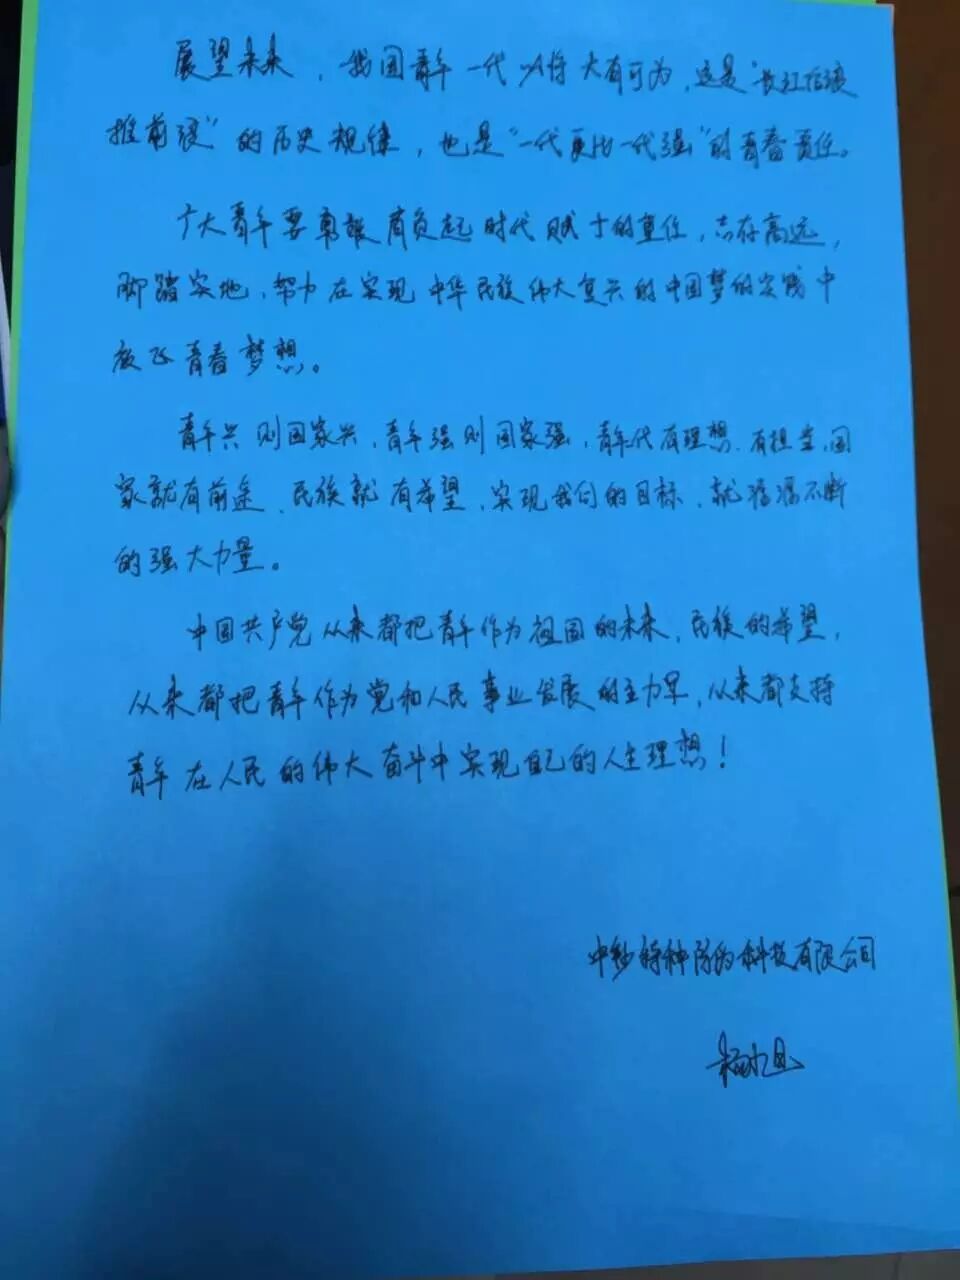 展望未来，我国青年一代必将大有可为，这是“长江后浪
推前浪”的历史规律，也是“一代更比一代强”的青春责任。
广大青年要勇敢肩负起时代赋予的重任，志存高远，
脚踏实地，努力在实现中华民族伟大复兴的中国梦的实践中
放飞青春梦想。
青年兴则国家兴，青年强则国家强，青年代有理想、有担当，国
家就有前途、民族就有希望，实现我们的目标，就源源不断
的强大力量。
中国共产党从来都把青年作为祖国的未来，民族的希望，
从来都把青年作为党和人民事业发展的主力军，从来都支持
青年在人民的伟大奋斗中实现自己的人生理想！
中钞特种防伪科技有限公司